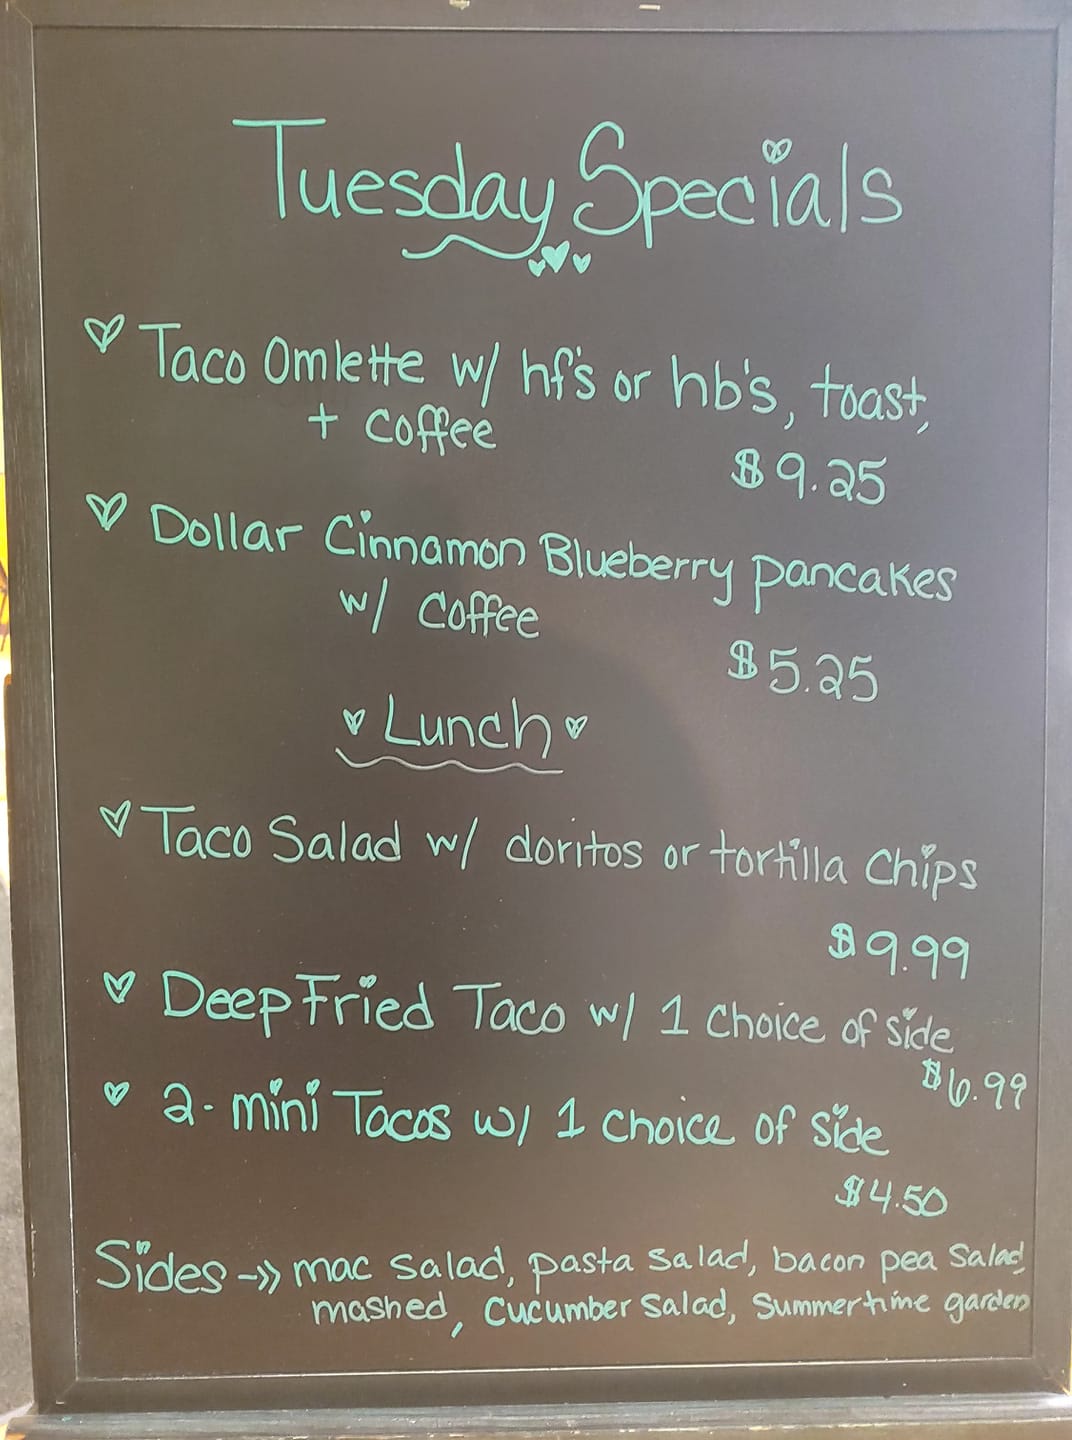 Tuesday Specials
Taco Omlette w/ hf's or hb's, toast,
+ coffee
$9.25
Dollar Cinnamon Blueberry pancakes
w/ coffee
$5.25
Lunch
Taco Salad w/ doritos or tortilla Chips
$9.99
Deep Fried Taco w/ 1 choice of side
$6.99
2- mini Tacos w/ 1 choice of side
$4.50
Sides ->> mac salad, pasta salad, bacon pea Salad,
mashed, cucumber salad, Summertime garden